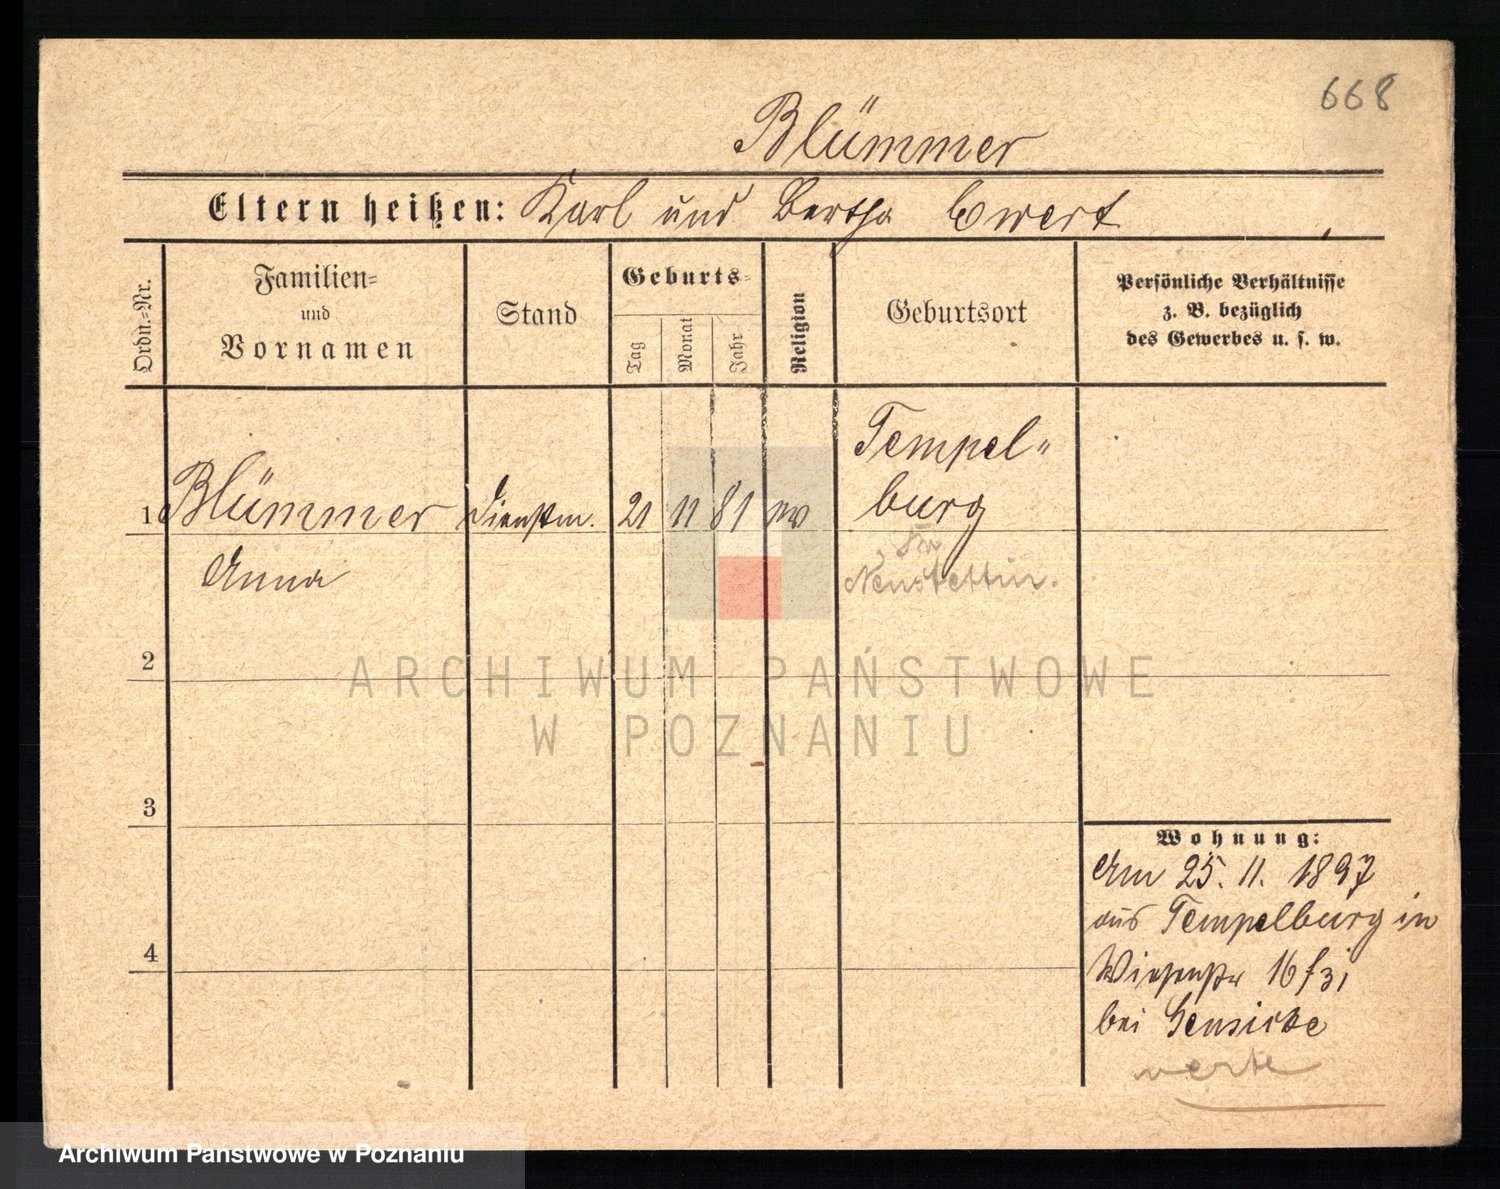 668
Blümmer
Eltern heißen: Karl und Bertha Ewert
Ordn.-Nr.
Familien-
und
Vornamen
Stand
Geburts-
Tag
Monat
Jahr
Religion
Geburtsort
Persönliche Verhältnisse
z. B. bezüglich
des Gewerbes u. s. w.
1 Blümmer Dienstm. 21 11 81 ev Tempel-
burg
Anna
Neustettin.
2
3
4
Wohnung:
Am 25. 11. 1897
aus Tempelburg in
Wiesenstr 16
bei Gensicke
verte
ARCHIWUM PAŃSTWOWE
W POZNANIU
Archiwum Państwowe w Poznaniu